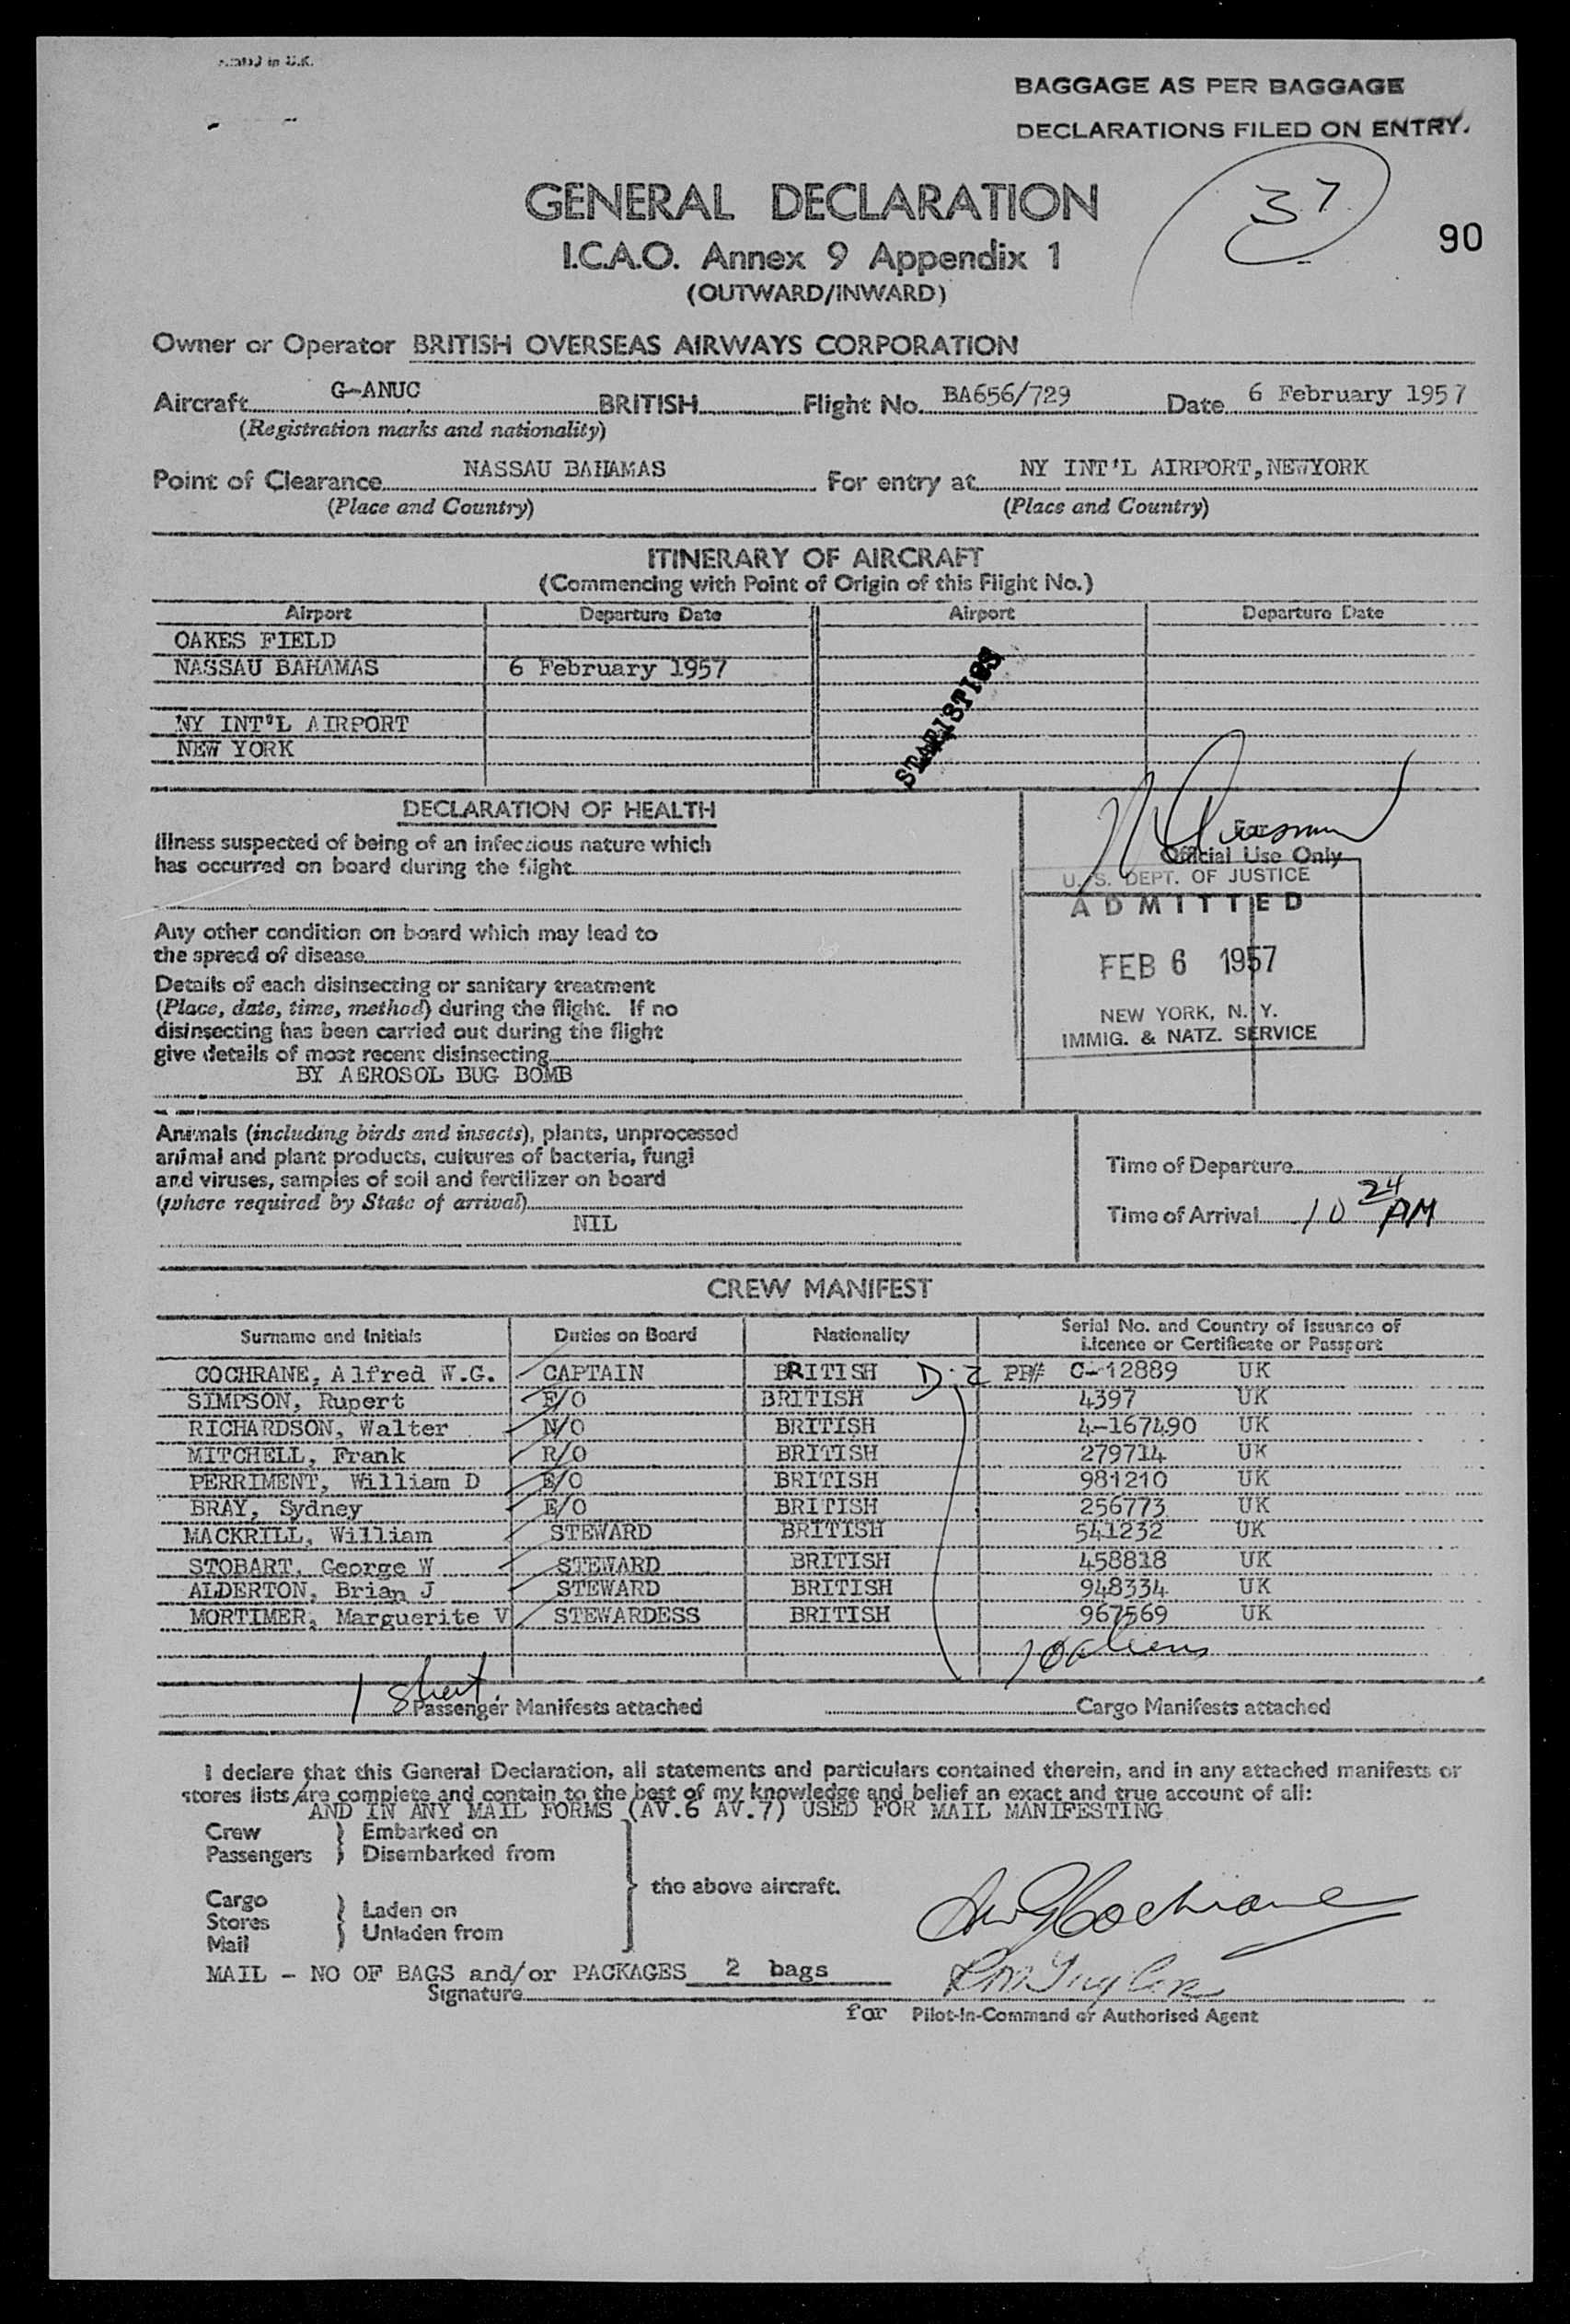 Printed in U.K.
BAGGAGE AS PER BAGGAGE
DECLARATIONS FILED ON ENTRY.
37
90
GENERAL DECLARATION
I.C.A.O. Annex 9 Appendix 1
(OUTWARD/INWARD)
Owner or Operator BRITISH OVERSEAS AIRWAYS CORPORATION
Aircraft G-ANUC BRITISH Flight No. BA656/729 Date 6 February 1957
(Registration marks and nationality)
Point of Clearance NASSAU BAHAMAS For entry at NY INT'L AIRPORT, NEWYORK
(Place and Country) (Place and Country)
ITINERARY OF AIRCRAFT
(Commencing with Point of Origin of this Flight No.)
Airport Departure Date Airport Departure Date
OAKES FIELD
NASSAU BAHAMAS 6 February 1957
NY INT'L AIRPORT
NEW YORK
STATISTICS
DECLARATION OF HEALTH
Illness suspected of being of an infectious nature which
has occurred on board during the flight
Any other condition on board which may lead to
the spread of disease
Details of each disinsecting or sanitary treatment
(Place, date, time, method) during the flight. If no
disinsecting has been carried out during the flight
give details of most recent disinsecting
BY AEROSOL BUG BOMB
For
Official Use Only
U. S. DEPT. OF JUSTICE
ADMITTED
FEB 6 1957
NEW YORK, N. Y.
IMMIG. & NATZ. SERVICE
Animals (including birds and insects), plants, unprocessed
animal and plant products, cultures of bacteria, fungi
and viruses, samples of soil and fertilizer on board
(where required by State of arrival)
NIL
Time of Departure
Time of Arrival 10 24 AM
CREW MANIFEST
Surname and Initials Duties on Board Nationality Serial No. and Country of Issuance of
Licence or Certificate or Passport
COCHRANE, Alfred W.G. CAPTAIN BRITISH D-2 PP# C-12889 UK
SIMPSON, Rupert F/O BRITISH 4397 UK
RICHARDSON, Walter N/O BRITISH 4-167490 UK
MITCHELL, Frank R/O BRITISH 279714 UK
PERRIMENT, William D E/O BRITISH 981210 UK
BRAY, Sydney E/O BRITISH 256773 UK
MACKRILL, William STEWARD BRITISH 541232 UK
STOBART, George W STEWARD BRITISH 458818 UK
ALDERTON, Brian J STEWARD BRITISH 948334 UK
MORTIMER, Marguerite V STEWARDESS BRITISH 967569 UK
10 aliens
1 sheet Passenger Manifests attached Cargo Manifests attached
I declare that this General Declaration, all statements and particulars contained therein, and in any attached manifests or
stores lists are complete and contain to the best of my knowledge and belief an exact and true account of all:
AND IN ANY MAIL FORMS (AV.6 AV.7) USED FOR MAIL MANIFESTING
Crew Embarked on
Passengers Disembarked from
the above aircraft.
Cargo Laden on
Stores Unladen from
Mail
AWG Cochrane
MAIL - NO OF BAGS and/or PACKAGES 2 bags
Signature
for Pilot-in-Command or Authorised Agent